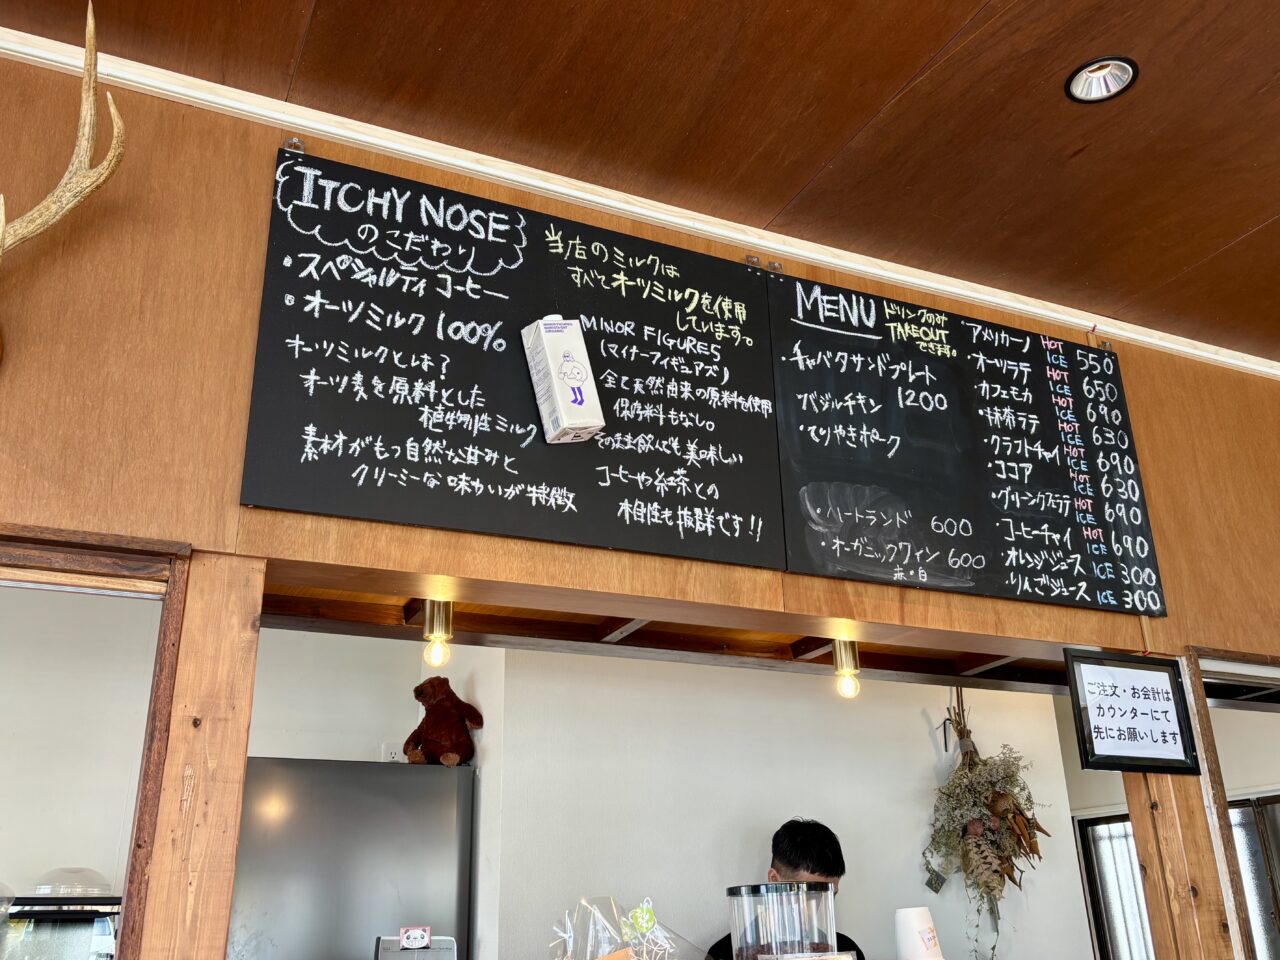 ITCHY NOSE
のこだわり
・スペシャルティコーヒー
・オーツミルク 100%
オーツミルクとは?
オーツ麦を原料とした
植物性ミルク
素材がもつ自然な甘みと
クリーミーな味わいが特徴
当店のミルクは
すべてオーツミルクを使用
しています。
MINOR FIGURES
(マイナーフィギュアズ)
全て天然由来の原料を使用
保存料もなし。
そのまま飲んでも美味しい
コーヒーや紅茶との
相性も抜群です!!
MENU
ドリンクのみ
TAKEOUT
できます。
・チャバタサンドプレート
・バジルチキン 1200
・てりやきポーク
・ハートランド 600
・オーガニックワイン 600
赤・白
・アメリカーノ HOT ICE 550
・オーツラテ HOT ICE 650
・カフェモカ HOT ICE 690
・抹茶ラテ HOT ICE 630
・クラフトチャイ HOT ICE 690
・ココア HOT ICE 630
・グリーンクラテ HOT ICE 690
・コーヒーチャイ HOT ICE 690
・オレンジジュース ICE 300
・りんごジュース ICE 300
ご注文・お会計は
カウンターにて
先にお願いします